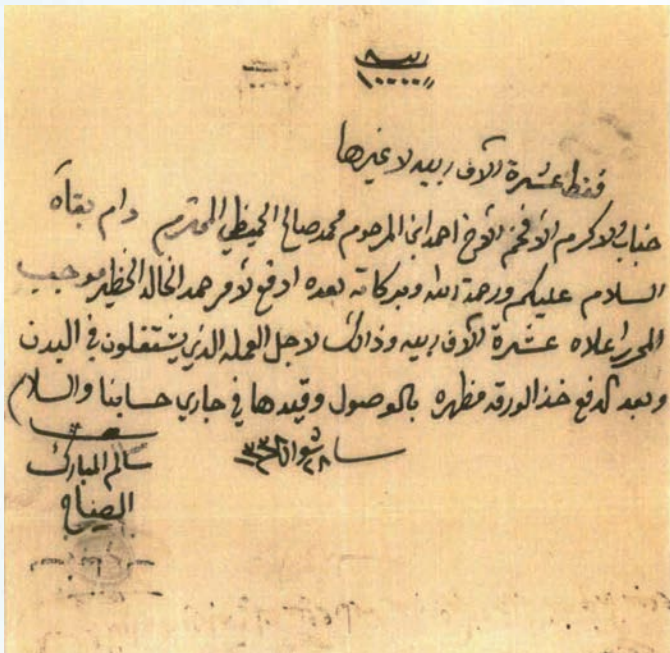 ربيه
١٠٠٠٠
فقط عشرة آلاف ربيه لا غيرها
جناب الاكرم الأفخم الأخ احمد ابن المرحوم محمد صالح الحميظي المحترم دام بقاه
السلام عليكم ورحمة الله وبركاته بعده ادفع لأمر حمد الخالد الخظير موجب
المحرر اعلاه عشرة آلاف ربيه وذالك لاجل العمله الذي يشتغلون في البدن
وبعد الدفع خذ الورقه مظهره بالوصول وقيدها في جاري حسابنا والسلام
٢٨ شوال
سالم المبارك
الصباح